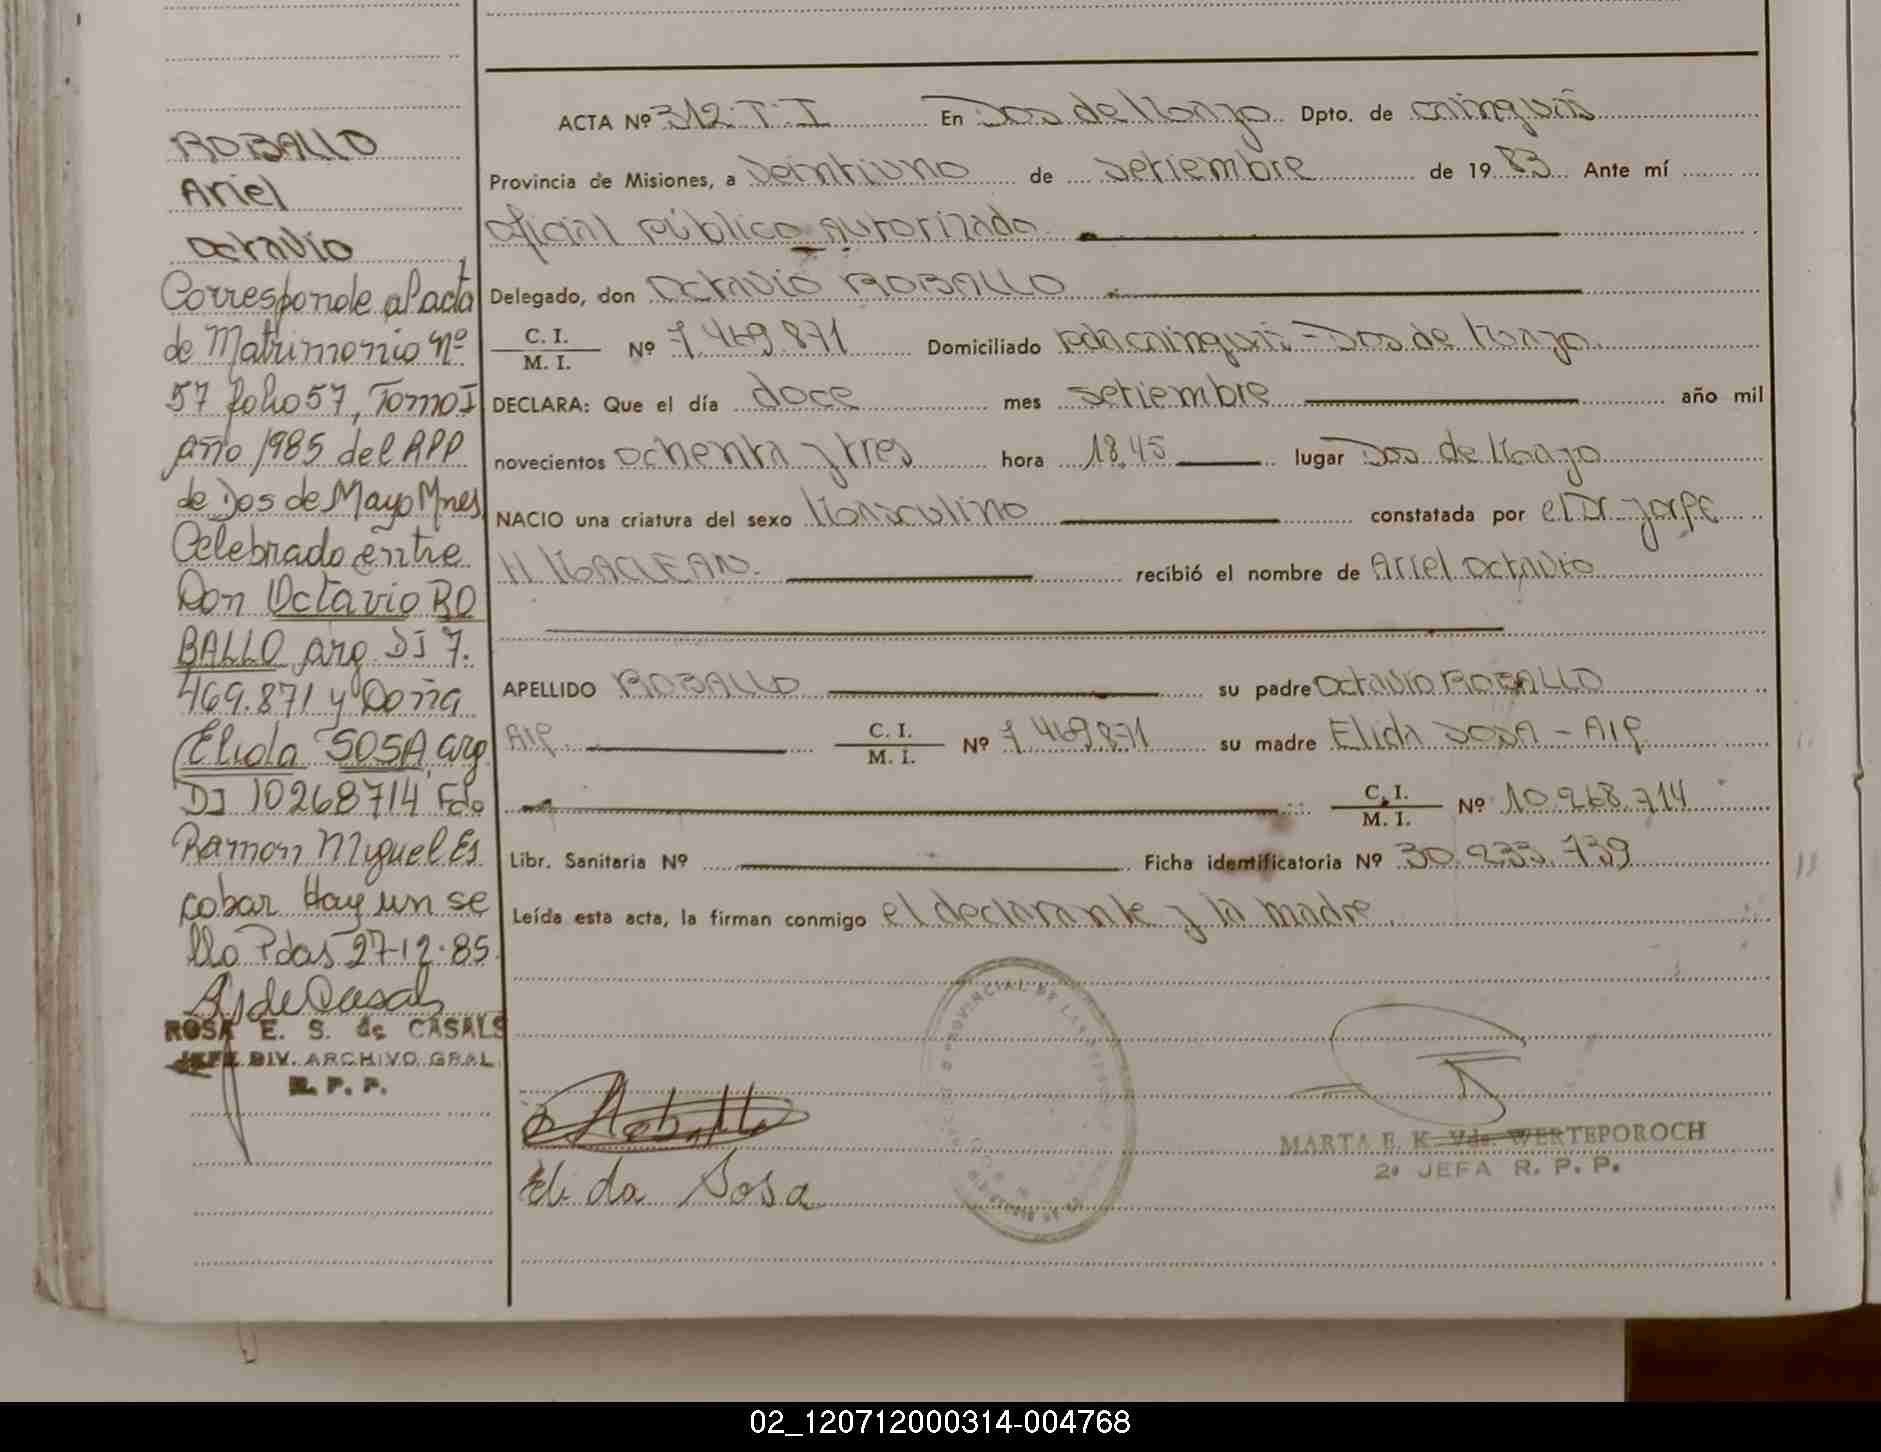 ROBALLO
Ariel
Octavio
Corresponde al acta
de Matrimonio Nº
57 folio 57, Tomo I
año 1985 del RPP
de Dos de Mayo Mnes
Celebrado entre
Don Octavio RO
BALLO arg. DI 7.
469.871 y Doña
Elida SOSA arg
DI 10268714 Fdo
Ramon Miguel Es
cobar Hay un se
llo Pdas 27-12-85
ROSA E. S. de CASALS
JEFE DIV. ARCHIVO GRAL
R. P. P.
ACTA Nº 312-T-I En Dos de Mayo Dpto. de Cainguás
Provincia de Misiones, a veintiuno de setiembre de 1983 Ante mí
Oficial Público Autorizado
Delegado, don Octavio ROBALLO
C. I.
M. I. Nº 7.469.871 Domiciliado Pda Cainguás - Dos de Mayo
DECLARA: Que el día doce mes setiembre año mil
novecientos ochenta y tres hora 18.45 lugar Dos de Mayo
NACIO una criatura del sexo Masculino constatada por el Dr. Jorge
H. MACLEAN. recibió el nombre de Ariel Octavio
APELLIDO ROBALLO su padre Octavio ROBALLO
C. I.
M. I. Nº 7.469.871 su madre Elida SOSA -
C. I.
M. I. Nº 10.268.714
Libr. Sanitaria Nº Ficha identificatoria Nº 30.233.739
Leída esta acta, la firman conmigo el declarante y la madre.
O Roballo
Elida Sosa
MARTA E. K. Vda. WERTEPOROCH
2a JEFA R. P. P.
02_120712000314-004768